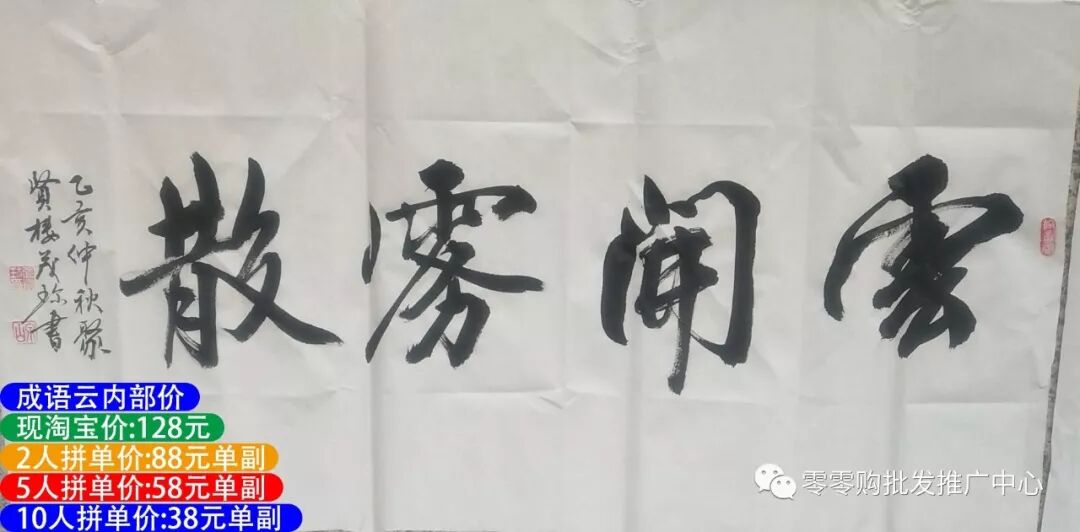 雲開霧散
乙亥仲秋聚
賢楼 珍書
成语云内部价
现淘宝价:128元
2人拼单价:88元单副
5人拼单价:58元单副
10人拼单价:38元单副
零零购批发推广中心